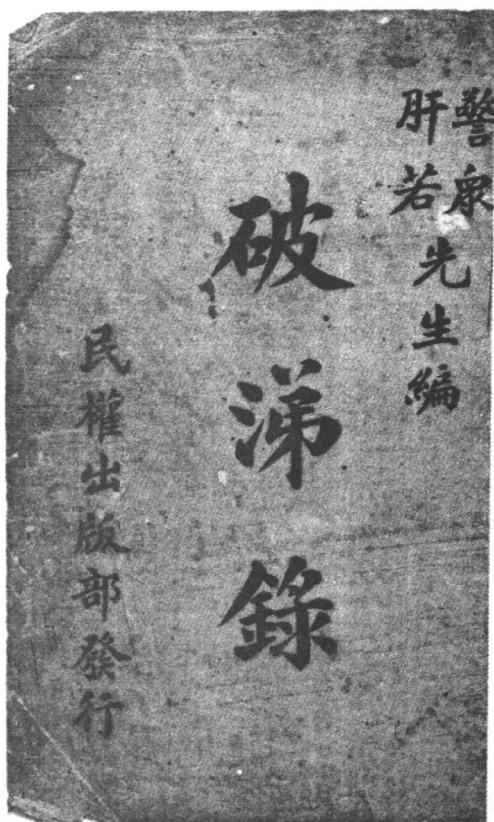 警衆
肝若
先生編
破涕錄
民權出版部發行